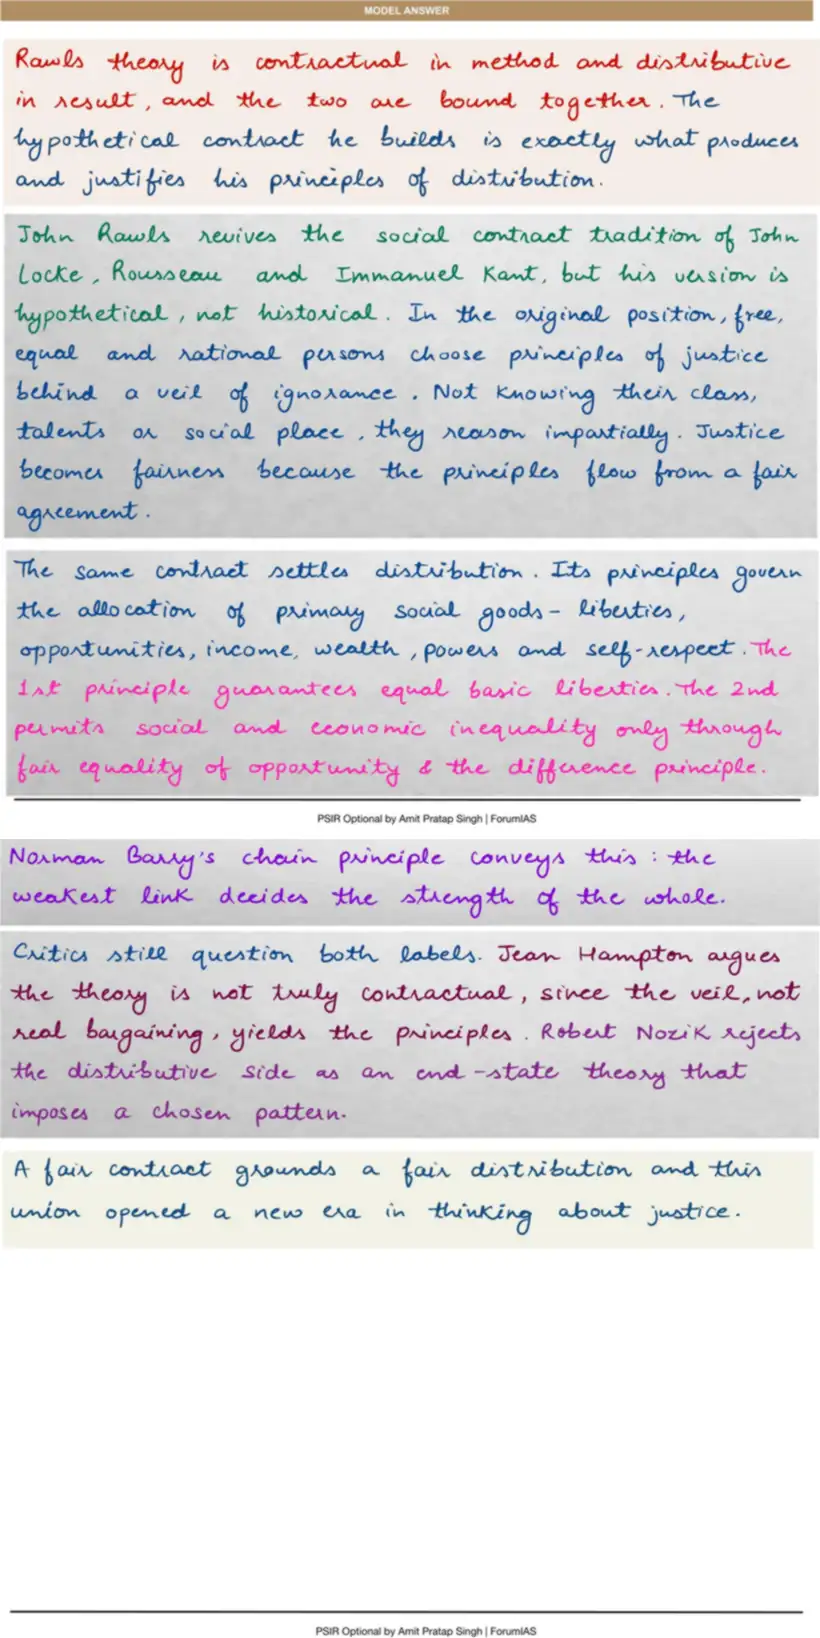 MODEL ANSWER
Rawls theory is contractual in method and distributive
in result, and the two are bound together. The
hypothetical contract he builds is exactly what produces
and justifies his principles of distribution.
John Rawls revives the social contract tradition of John
Locke, Rousseau and Immanuel Kant, but his version is
hypothetical, not historical. In the original position, free,
equal and rational persons choose principles of justice
behind a veil of ignorance. Not knowing their class,
talents or social place, they reason impartially. Justice
becomes fairness because the principles flow from a fair
agreement.
The same contract settles distribution. Its principles govern
the allocation of primary social goods- liberties,
opportunities, income, wealth, powers and self-respect. The
1st principle guarantees equal basic liberties. The 2nd
permits social and economic inequality only through
fair equality of opportunity & the difference principle.
PSIR Optional by Amit Pratap Singh | ForumIAS
Norman Barry's chain principle conveys this: the
weakest link decides the strength of the whole.
Critics still question both labels. Jean Hampton argues
the theory is not truly contractual, since the veil, not
real bargaining, yields the principles. Robert Nozik rejects
the distributive side as an end-state theory that
imposes a chosen pattern.
A fair contract grounds a fair distribution and this
union opened a new era in thinking about justice.
PSIR Optional by Amit Pratap Singh | ForumIAS